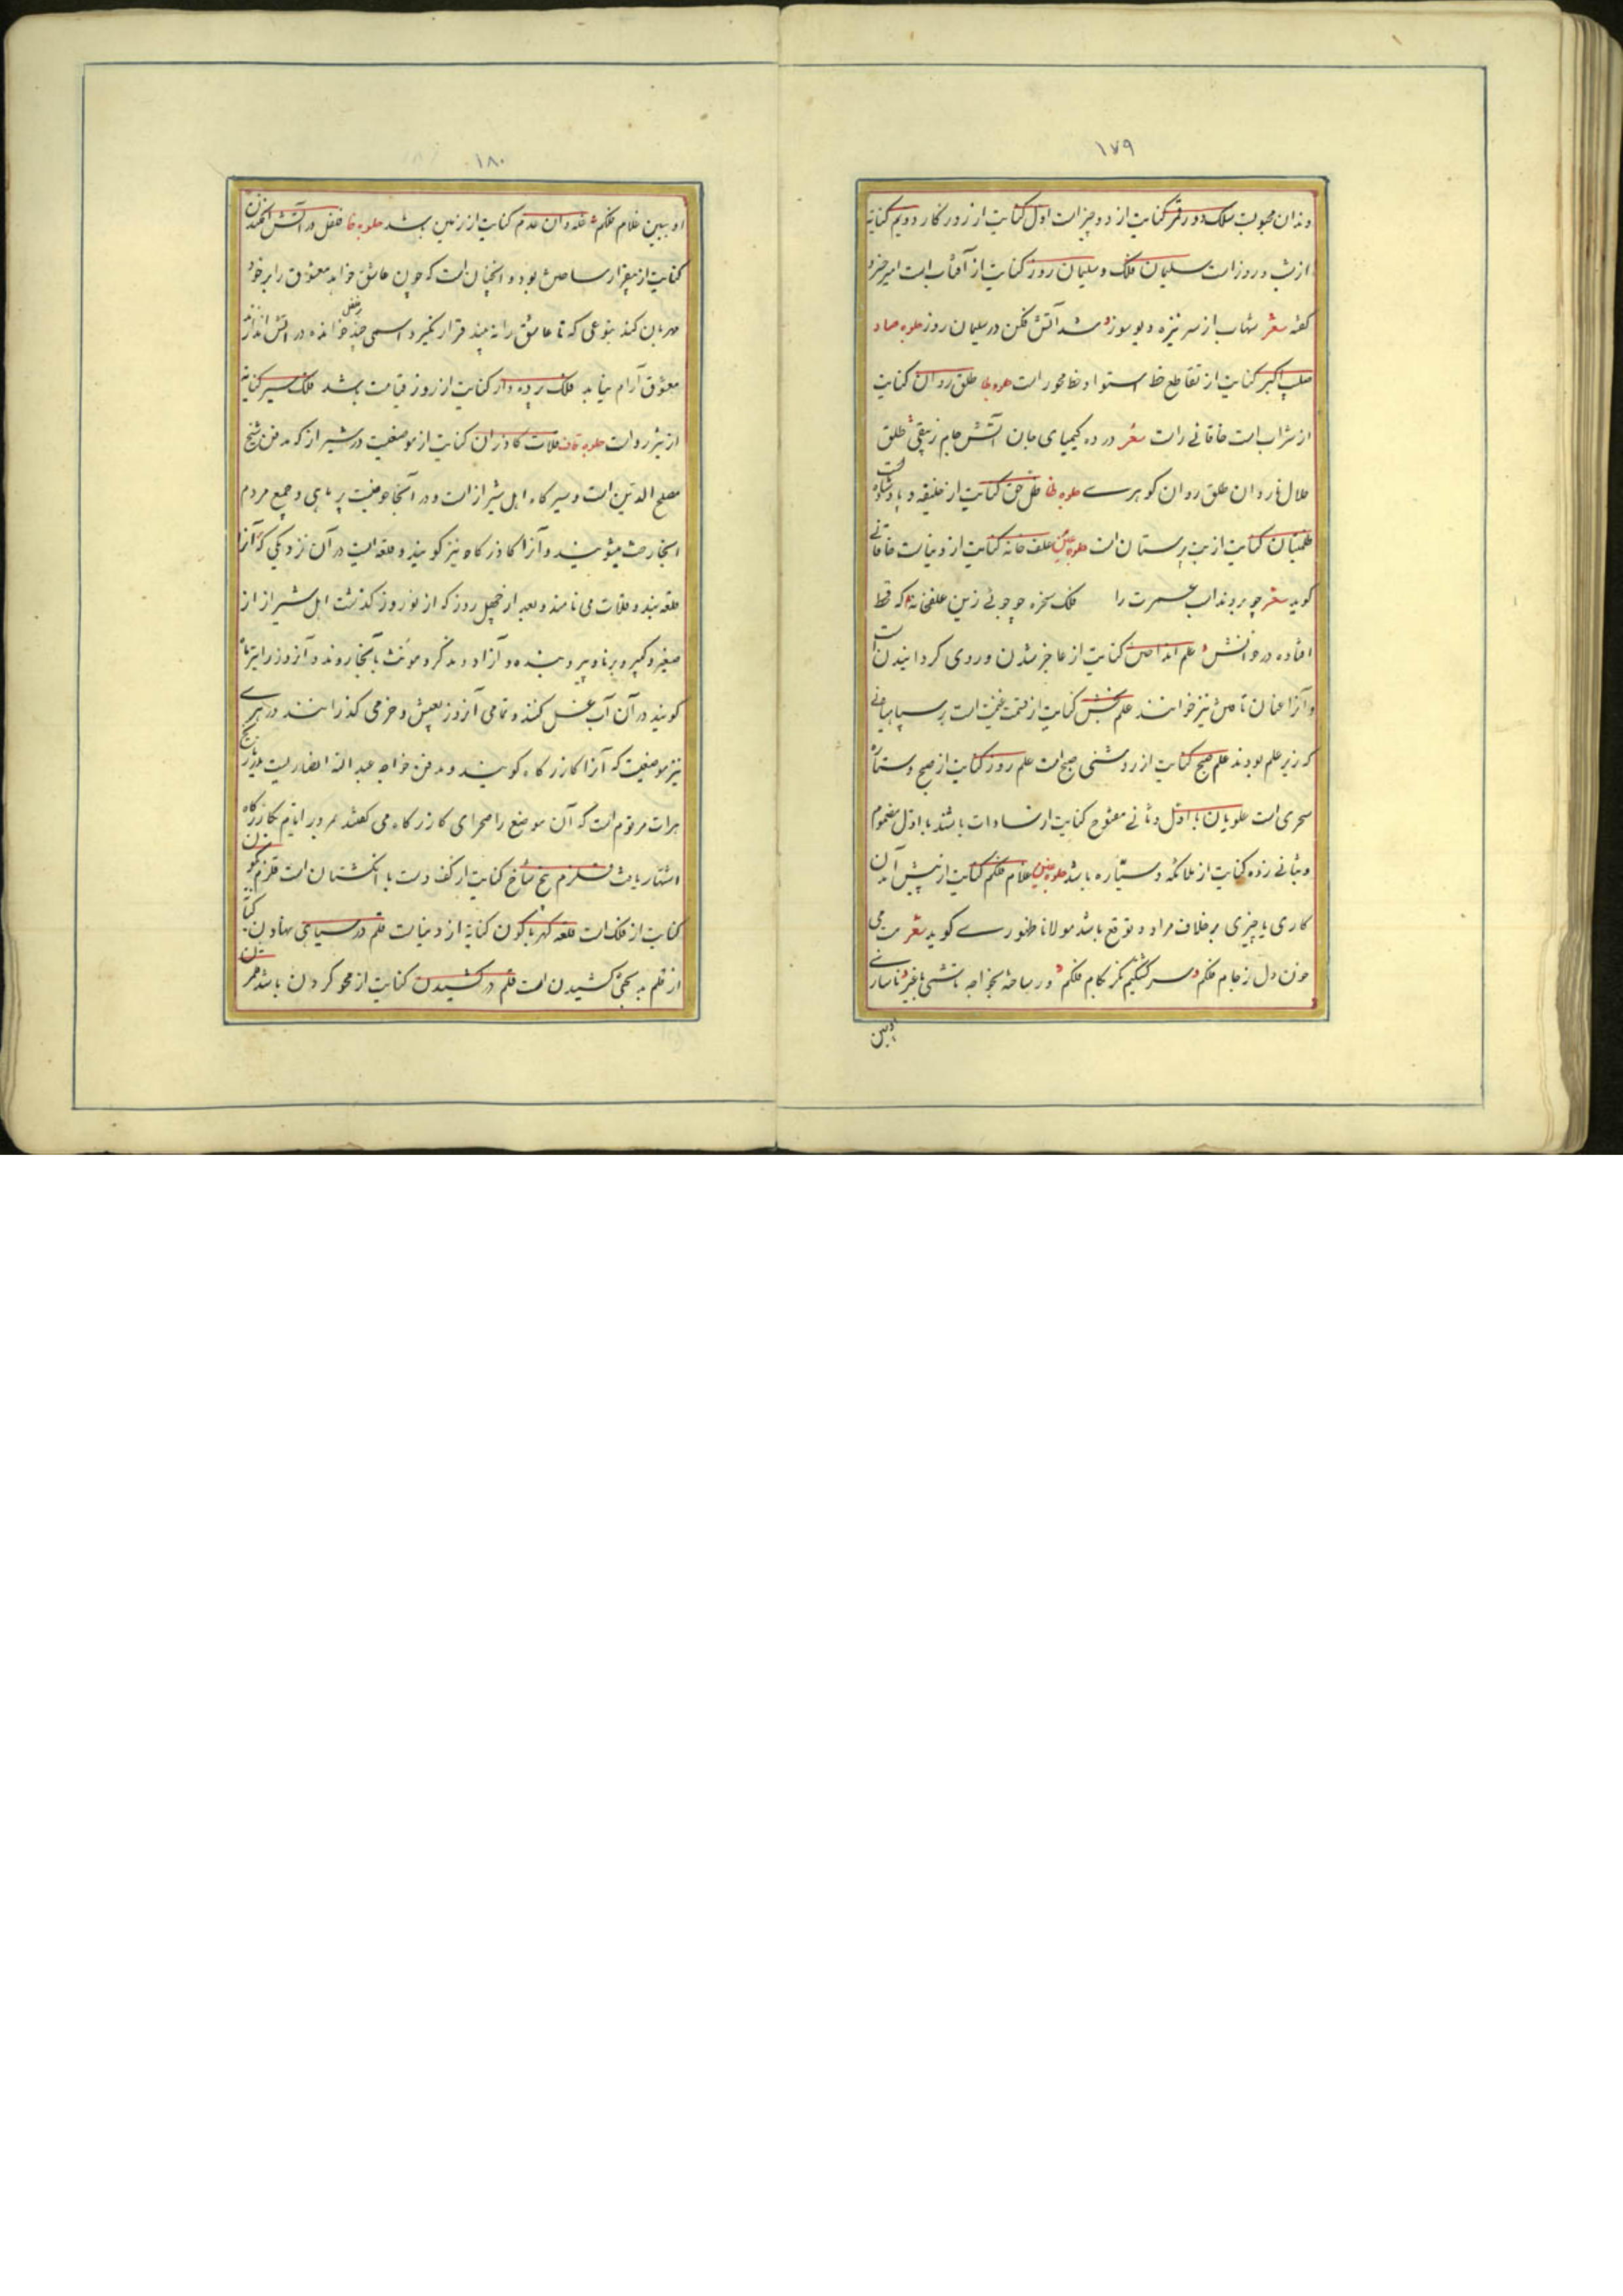 ۱۷۹
دندان محبوبست سلک دور قمر کنایت از دو چیز است اول کنایت از روزگار دویم کنایه
از شب و روز است سلیمان فلک و سلیمان روز کنایت از آفتاب است امیر خسرو
گفته شعر شهاب از سر نیزه دیو سوز شد آتش فکن در سلیمان روز جلوه صاد
صلیب اکبر کنایت از تقاطع خط استوا و خط محور است جلوه طا طلق روان کنایت
از شراب است خاقانی راست شعر در ده کیمیای جان آتش جام زیبقی طلق
حلال نار دان طلق روان گوهری جلوه ظا ظل حق کنایت از خلیفه و پادشاه است
ظلمتیان کنایت از بت پرستان است جلوه عین علف خانه کنایت از دنیاست خاقانی
گوید شعر چو بر بنداب عسرت را فلک سخره چو جوئی زین علفخانه که قحط
افتاده در خوانش علم انداختن کنایت از عاجز شدن و روی گردانیدن است
و آنرا عنان تافتن نیز خوانند علم بخش کنایت از قسمت غنیمت است بر سپاهیانی
که زیر علم بودند علم صبح کنایت از روشنی صبح است علم روز کنایت از صبح و ستاره
سحری است علویان با اول و ثانی مفتوح کنایت از سادات باشند با اول مضموم
و ثانی زده کنایت از ملائکه و سیاره باشد جلوه غین غلام فلکم کنایت از پیش آمدن
کاری یا چیزی بر خلاف مراد و توقع باشد مولانا ظهوری گوید شعر مست می
خون دل ز جام فلکم سر گشته‌ام کز کام فلکم در ساخته بخواجه تاشی با غیر ناسازی
او ببین
۱۸۰
او ببین غلام فلکم غله دان عدم کنایت از زمین باشد جلوه فا فلفل در آتش افکندن
کنایت از بیقرار ساختن بود و آنچنان است که چون عاشق خواهد معشوق را بر خود
مهربان کند بنوعی که تا عاشق را نه بیند قرار نگیرد اسمی چند بر فلفل خوانده در آتش اندازند
معشوق آرام نیابد فلک پرده دار کنایت از روز قیامت باشد فلک سیر کنایه
از تیز رو است جلوه قاف قلات گاذران کنایت از موضعیست در شیراز که مدفن شیخ
مصلح الدین است و سیرگاه اهل شیراز است و در آنجا حوضیست پر ماهی و جمیع مردم
آنجا رخت میشویند و آنرا گاذرگاه نیز گویند و قلعه ایست در آن نزدیکی که آنرا
قلعه بند و قلات می نامند و بعد از چهل روز که از نوروز گذشت اهل شیراز از
صغیر و کبیر و برنا و پیر و بنده و آزاد و مذکر و مونث بآنجا روند و آنروز را تیرماه
گویند در آن آب غسل کنند و تمامی آنروز بعیش و خرمی گذرانند در هری
نیز موضعیست که آنرا کازرگاه گویند و مدفن خواجه عبدالله انصاریست در تاریخ
هرات مرقوم است که آن موضع را صحرای کارزارگاه می گفتند بمرور ایام بکازرگاه
اشتهار یافت قلزم پنج شاخ کنایت از کف دست با انگشتان است قلزم نگون
کنایت از فلک است قلعه کهربا گون کنایه از دنیاست قلم در سیاهی نهادن کنایت
از قلم به کجی کشیدن است قلم در کشیدن کنایت از محو کردن باشد